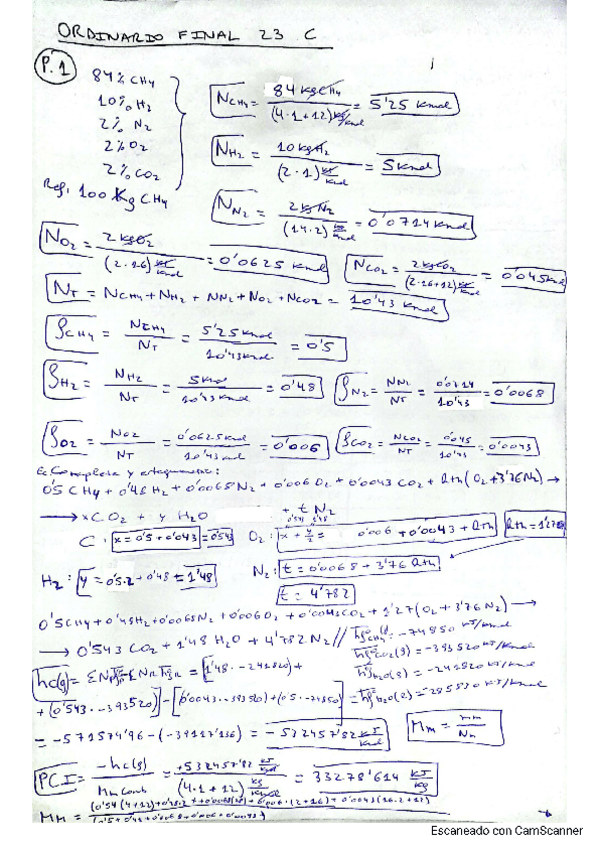 ORDINARIO FINAL 23 C
P.1
84% CH4
10% H2
2% N2
2% O2
2% CO2
Ref: 100 Kg CH4
NCH4 = 84 kg CH4 / (4·1+12) kg/kmol = 5'25 kmol
NH2 = 10 kg H2 / (2·1) kg/kmol = 5 kmol
NN2 = 2 kg N2 / (14·2) kg/kmol = 0'0714 kmol
NO2 = 2 kg O2 / (2·16) kg/kmol = 0'0625 kmol
NCO2 = 2 kg CO2 / (2·16+12) kg/kmol = 0'045 kmol
NT = NCH4 + NH2 + NN2 + NO2 + NCO2 = 10'43 kmol
CH4 = NCH4 / NT = 5'25 kmol / 10'43 kmol = 0'5
H2 = NH2 / NT = 5 kmol / 10'43 kmol = 0'48
N2 = NN2 / NT = 0'0714 / 10'43 = 0'0068
O2 = NO2 / NT = 0'0625 kmol / 10'43 kmol = 0'006
CO2 = NCO2 / NT = 0'045 / 10'43 = 0'0043
Ec Completa y estequiometrica:
0'5 CH4 + 0'48 H2 + 0'0068 N2 + 0'006 O2 + 0'0043 CO2 + ath (O2 + 3'76 N2) →
→ x CO2 + y H2O + t N2
C: x = 0'5 + 0'043 = 0'543
O2: x + y/2 = 0'006 + 0'0043 + ath
ath = 1'27
H2: y = 0'5·2 + 0'48 = 1'48
N2: t = 0'0068 + 3'76 ath
t = 4'782
0'5 CH4 + 0'48 H2 + 0'0068 N2 + 0'006 O2 + 0'0043 CO2 + 1'27 (O2 + 3'76 N2) →
→ 0'543 CO2 + 1'48 H2O + 4'782 N2 //
hf CH4 = -74850 kJ/kmol
hf CO2 (g) = -393520 kJ/kmol
hf H2O (g) = -241820 kJ/kmol
hf H2O (l) = -285830 kJ/kmol
hc(g) = ΣNp hfp - ΣNR hfR = [1'48 · -241820) +
+ (0'543 · -393520)] - [0'0043 · -393520) + (0'5 · -74850)] =
= -571574'96 - (-39117'136) = -532457'82 kJ/kmol
Mm = mm / Nm
PCI = -hc(g) / Mm comb = +532457'82 kJ/kmol / (4·1+12) kg/kmol = 33278'614 kJ/kg
Escaneado con CamScanner